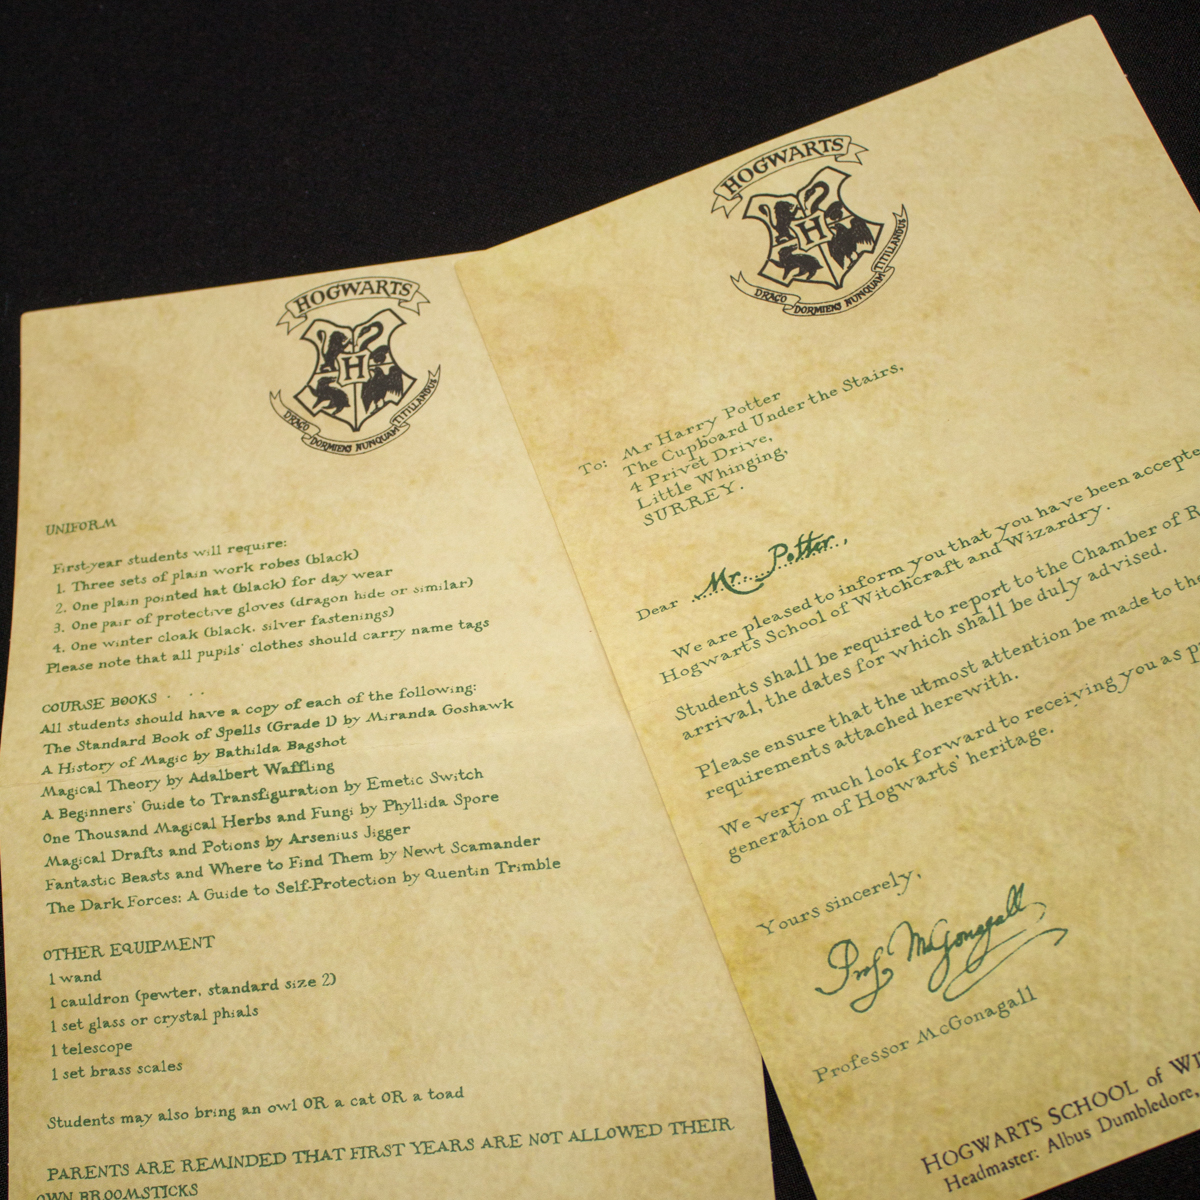 HOGWARTS
H
DRACO DORMIENS NUNQUAM TITILLANDUS
UNIFORM
First-year students will require:
1. Three sets of plain work robes (black)
2. One plain pointed hat (black) for day wear
3. One pair of protective gloves (dragon hide or similar)
4. One winter cloak (black, silver fastenings)
Please note that all pupils' clothes should carry name tags
COURSE BOOKS
All students should have a copy of each of the following:
The Standard Book of Spells (Grade 1) by Miranda Goshawk
A History of Magic by Bathilda Bagshot
Magical Theory by Adalbert Waffling
A Beginners' Guide to Transfiguration by Emetic Switch
One Thousand Magical Herbs and Fungi by Phyllida Spore
Magical Drafts and Potions by Arsenius Jigger
Fantastic Beasts and Where to Find Them by Newt Scamander
The Dark Forces: A Guide to Self-Protection by Quentin Trimble
OTHER EQUIPMENT
1 wand
1 cauldron (pewter, standard size 2)
1 set glass or crystal phials
1 telescope
1 set brass scales
Students may also bring an owl OR a cat OR a toad
PARENTS ARE REMINDED THAT FIRST YEARS ARE NOT ALLOWED THEIR
OWN BROOMSTICKS
HOGWARTS
H
DRACO DORMIENS NUNQUAM TITILLANDUS
To: Mr Harry Potter
The Cupboard Under the Stairs,
4 Privet Drive,
Little Whinging,
SURREY.
Dear Mr. Potter,
We are pleased to inform you that you have been accepte
Hogwarts School of Witchcraft and Wizardry.
Students shall be required to report to the Chamber of R
arrival, the dates for which shall be duly advised.
Please ensure that the utmost attention be made to the
requirements attached herewith.
We very much look forward to receiving you as p
generation of Hogwarts' heritage.
Yours sincerely,
Prof. McGonagall
Professor McGonagall
HOGWARTS SCHOOL of WI
Headmaster: Albus Dumbledore,